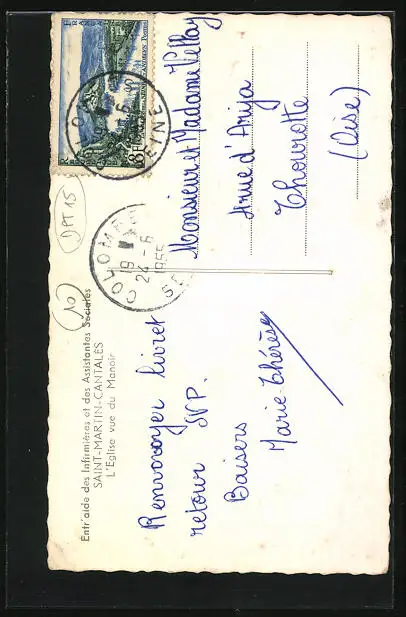 Entr'aide des Infirmières et des Assistantes Sociales
SAINT-MARTIN-CANTALÈS
L'Eglise vue du Manoir
10
DPT 15
Renvoyer livret
retour SVP.
Baisers
Marie Thérèse
COLOMBES
19 H
24 - 6
1955
SEINE
Monsieur et Madame Villay
4 rue d'
Thourotte
(Oise)